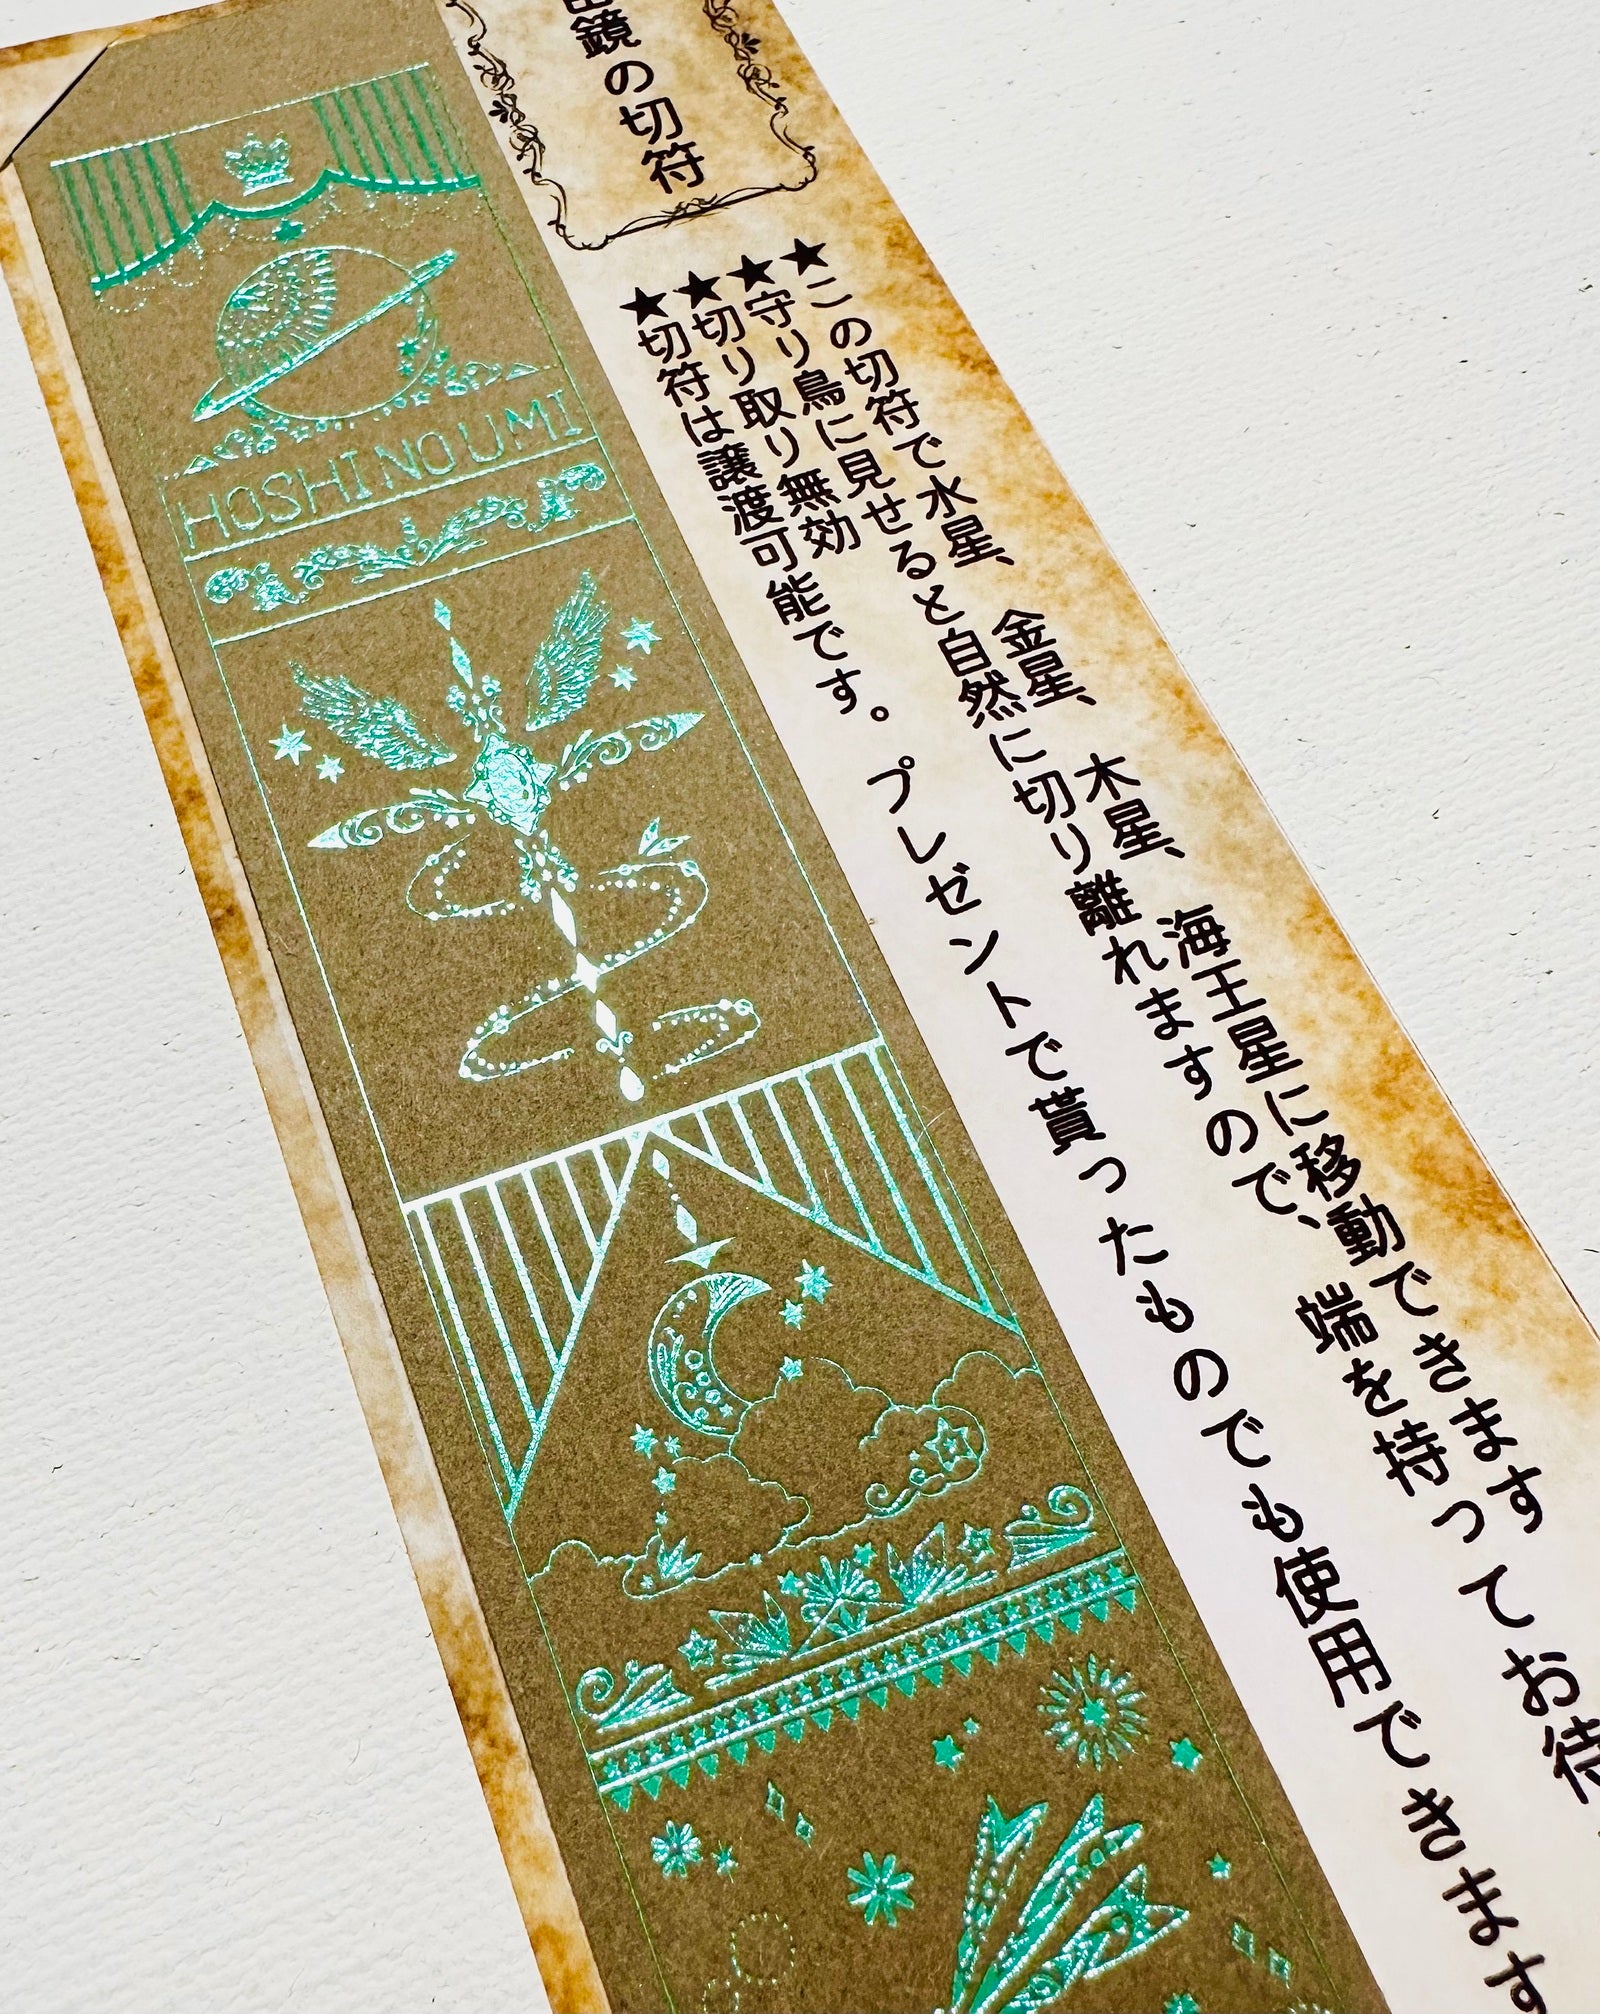 鏡の切符
★この切符で水星、金星、木星、海王星に移動できます
★守り鳥に見せると自然に切り離れますので、端を持ってお待
★切り取り無効
★切符は譲渡可能です。プレゼントで貰ったものでも使用できます
HOSHI NO UMI